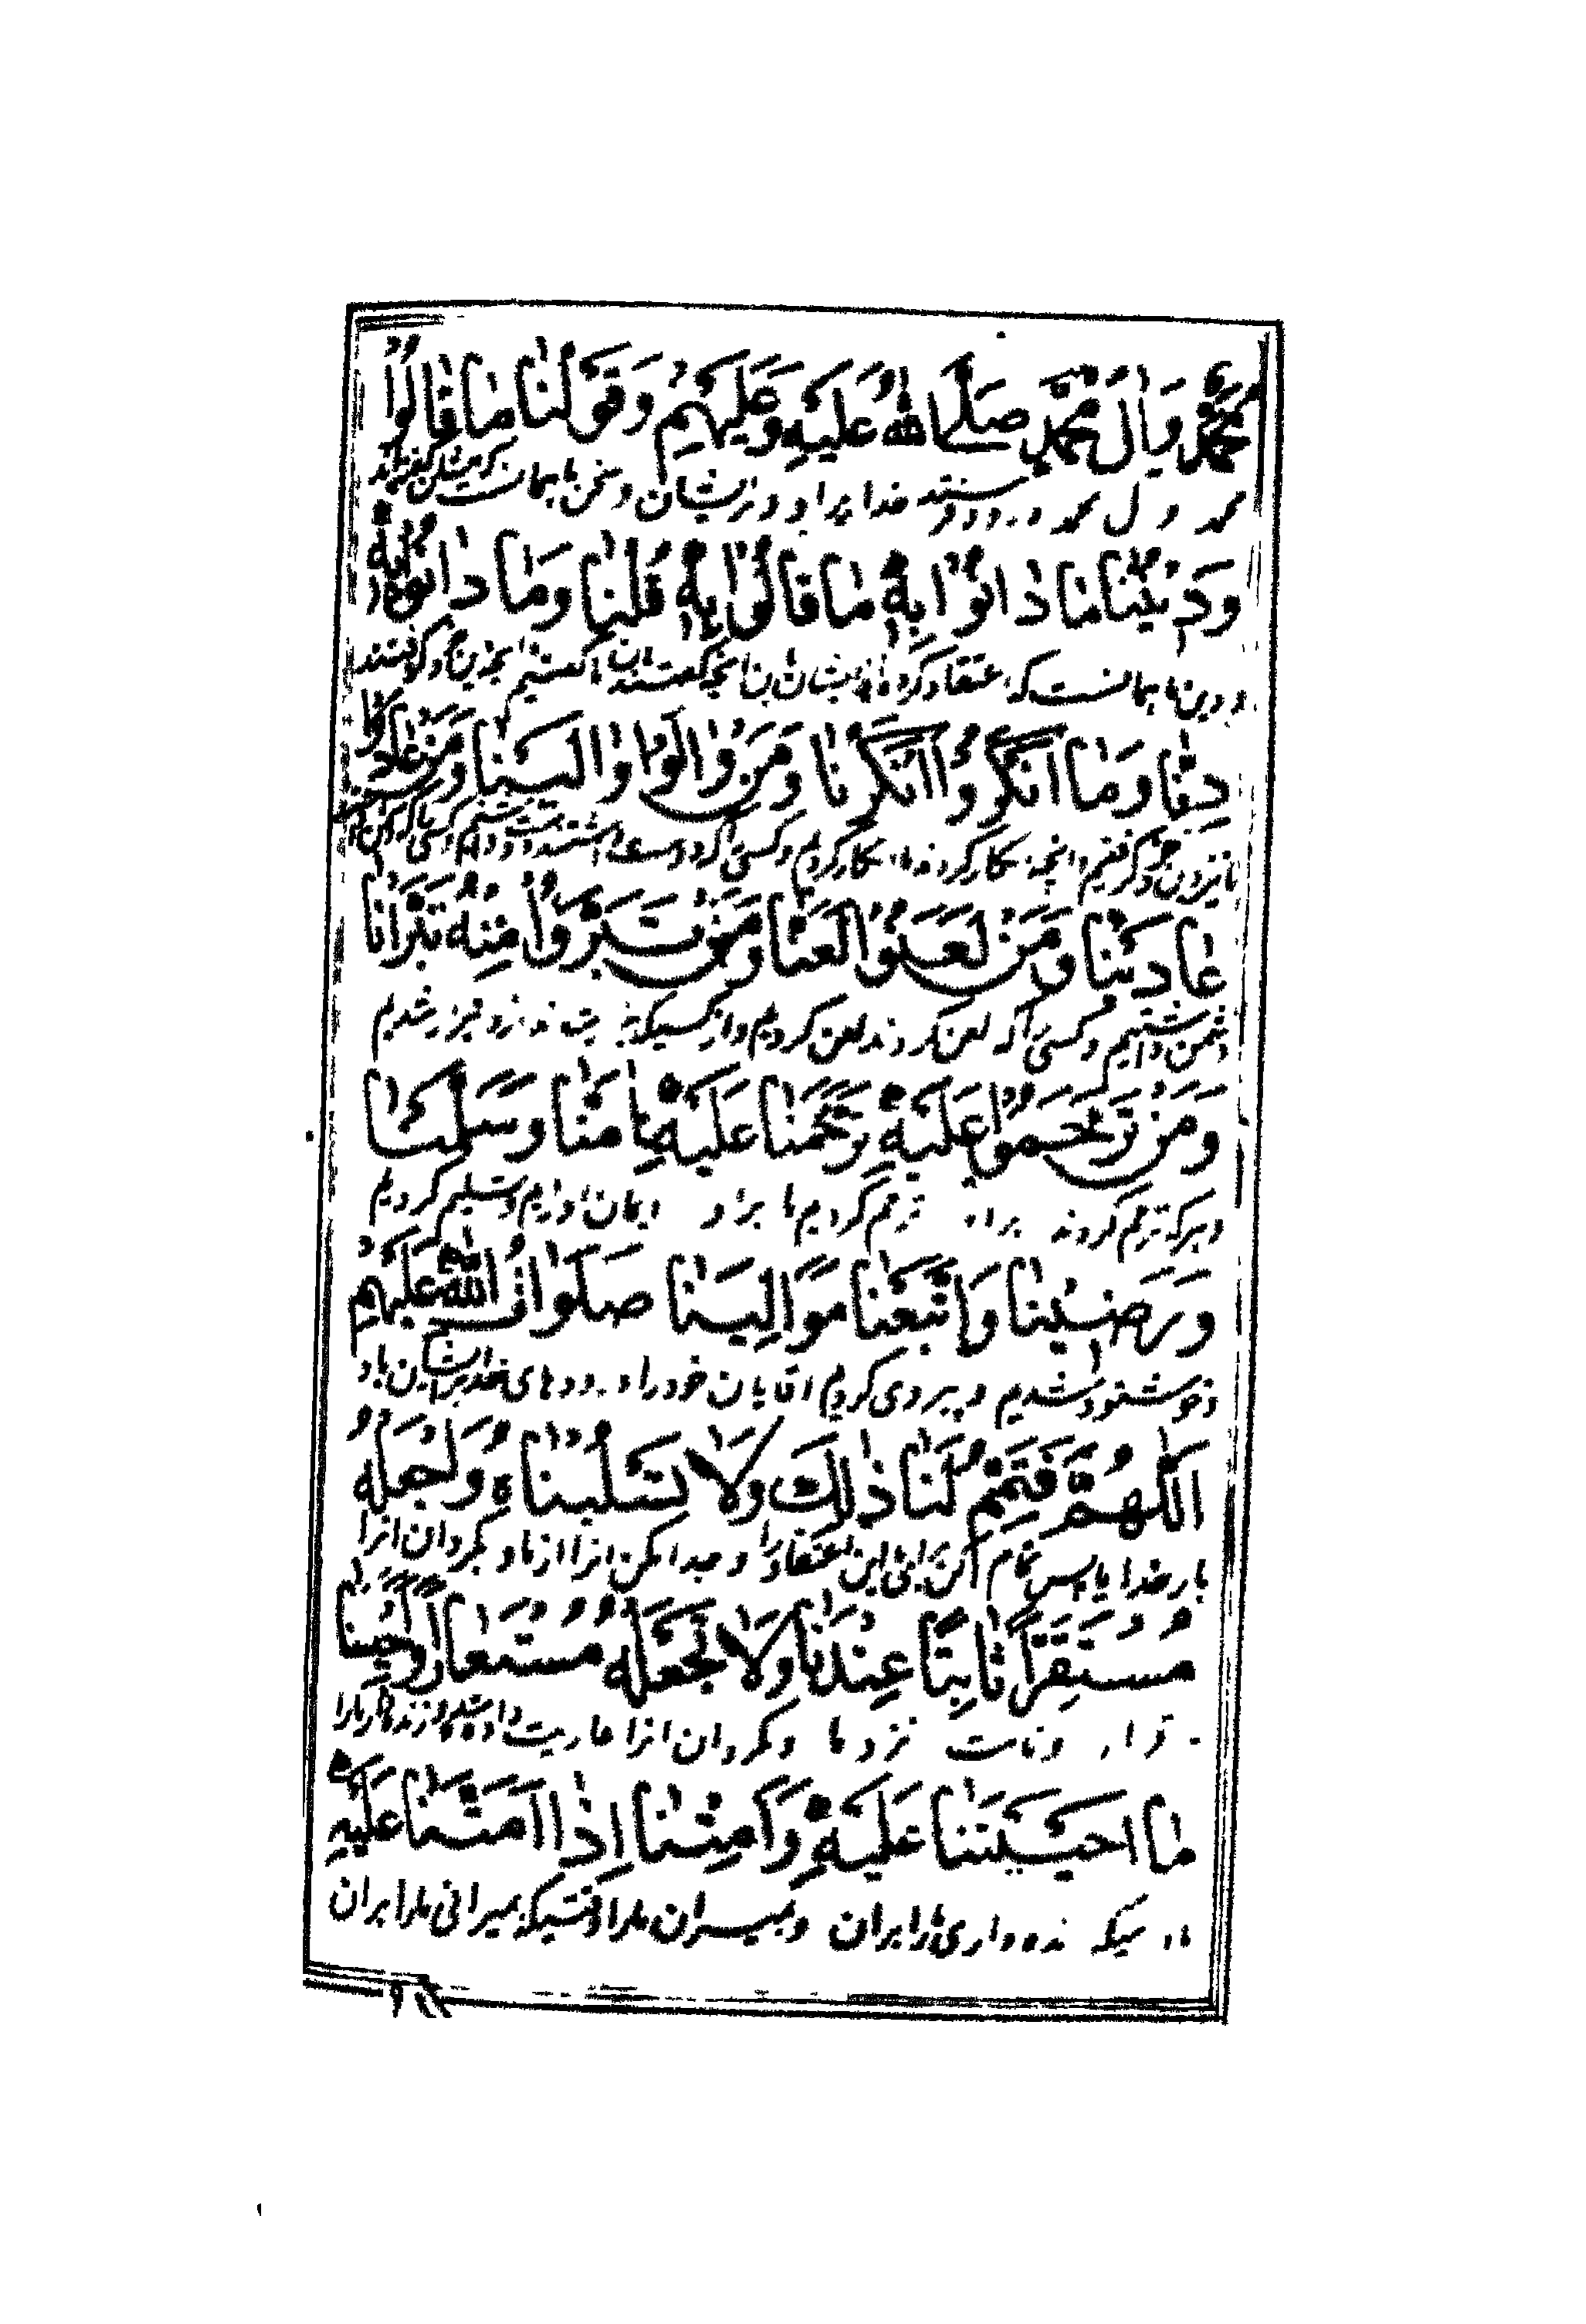 مُحَمَّدٍ وَاٰلَ مُحَمَّدٍ صَلَّى اللهُ عَلَيْهِ وَعَلَيْهِمْ وَقَوْلُنٰا مٰا قٰالُوْا
محمد و ل محمد خدا بر او و بر ایشان و سخن ما همان است که ایشان گفته‌اند
وَدِيْنُنٰا مٰا دٰانُوْا بِهٖ مٰا قٰالُوْا بِهٖ قُلْنٰا وَمٰا دٰانُوْا بِهٖ
و دین ما همانست که اعتقاد کرده‌اند ایشان بان انچه گفتند ان گفتیم
دِنّٰا وَمٰا اَنْكَرُوْا اَنْكَرْنٰا وَمَنْ وٰالَوْا وٰالَيْنٰا وَمَنْ عٰادَوْا
انچه انکار کردند ما انکار کردیم و کسی را که دوست داشتند
عٰادَيْنٰا وَمَنْ لَعَنُوْا لَعَنّٰا وَمَنْ تَبَرَّؤُا مِنْهُ تَبَرَّاْنٰا
دشمن داشتیم و کسی را که لعن کردند لعن کردیم و از کسیکه بیزار شدیم
وَمَنْ تَرَحَّمُوْا عَلَيْهِ تَرَحَّمْنٰا عَلَيْهِ اٰمَنّٰا وَسَلَّمْنٰا
و هرکه ترحم کردند بر او ترحم کردیم ما بر او ایمان اوردیم و تسلیم کردیم
وَرَضِيْنٰا وَاتَّبَعْنٰا مَوٰالِيَنٰا صَلَوٰاتُ اللهِ عَلَيْهِمْ
و خوشنود شدیم و پیروی کردیم اقایان خود را درودهای خدا بر ایشان باد
اَللّٰهُمَّ فَتَمِّمْ لَنٰا ذٰلِكَ وَلٰا تَسْلُبْنٰاهُ وَاجْعَلْهُ
بار خدایا پس تمام کن برای ما این اعتقاد را و جدا مکن انرا از ما و بگردان انرا
مُسْتَقِرًّا ثٰابِتًا عِنْدَنٰا وَلٰا تَجْعَلْهُ مُسْتَعٰارًا وَاَحْيِنٰا
نزد ما و مگردان انرا عاریت داده شده و زنده دار ما را
مٰا اَحْيَيْتَنٰا عَلَيْهِ وَاَمِتْنٰا اِذٰا اَمَتَّنٰا عَلَيْهِ
داری ما را بران و بمیران ما را وقتیکه بمیرانی ما را بران